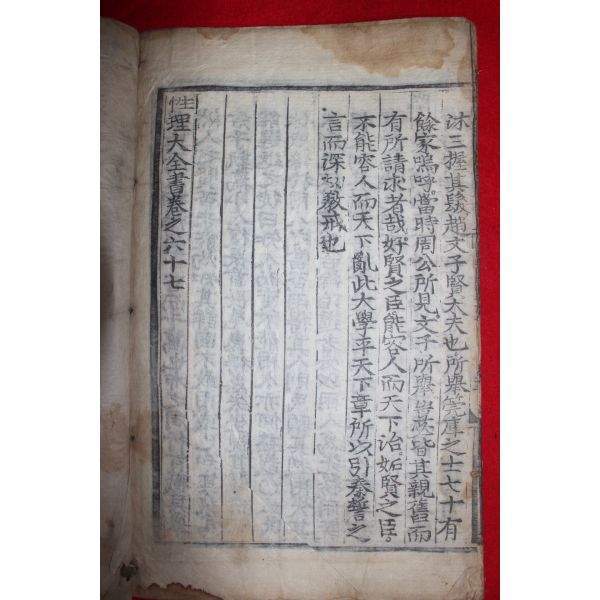 沐三握其髮趙文子賢大夫也所舉筦庫之士七十有
餘家嗚呼當時周公所見文子所舉豈茲皆其親舊而
有所請求者哉好賢之臣能容人而天下治妬賢之臣
不能容人而天下亂此大學平天下章所以引秦誓之
言而深致戒也
性理大全書卷之六十七